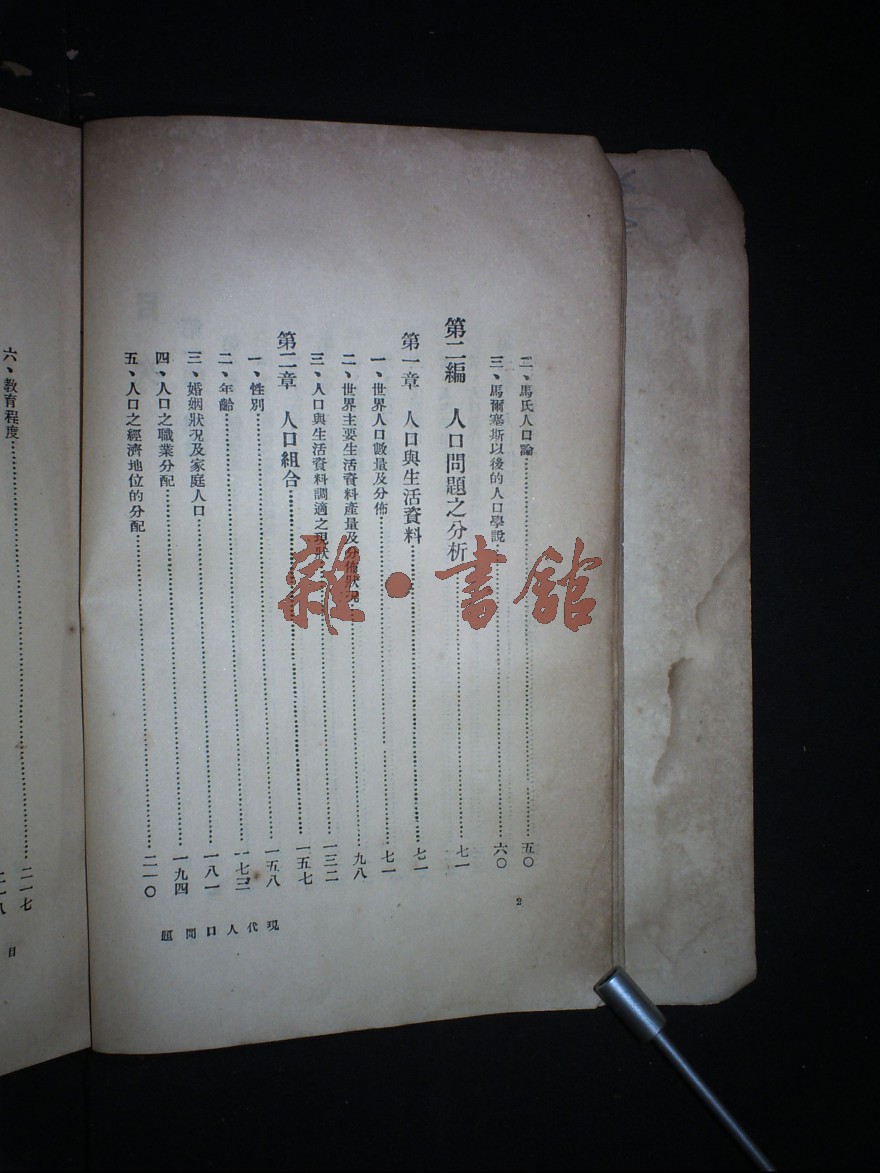 二、馬氏人口論……五〇
三、馬爾塞斯以後的人口學說……六〇
第二編　人口問題之分析……七一
第一章　人口與生活資料……七一
一、世界人口數量及分佈……七一
二、世界主要生活資料產量及分佈狀況……九八
三、人口與生活資料調適之現狀……一三二
第二章　人口組合……一五七
一、性別……一五八
二、年齡……一七三
三、婚姻狀況及家庭人口……一八一
四、人口之職業分配……一九四
五、人口之經濟地位的分配……二一〇
2
現代人口問題
六、教育程度……二一七
目
雜·書館